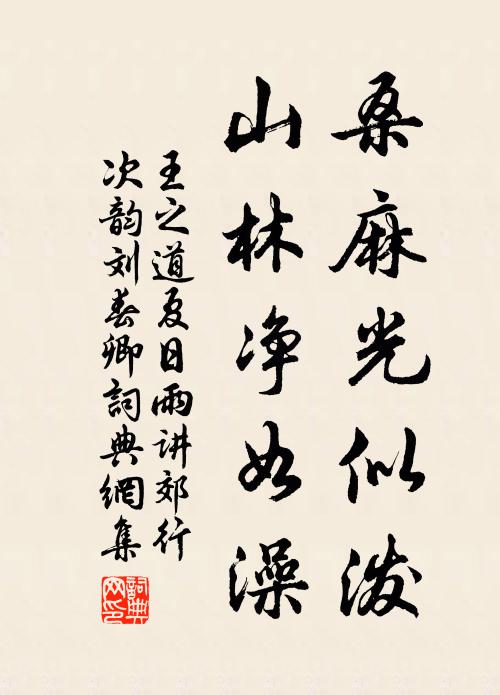 桑麻光似泼
山林净如澡
王之道夏日雨讲郊行
次韵刘春卿詞典網集
詞典网印